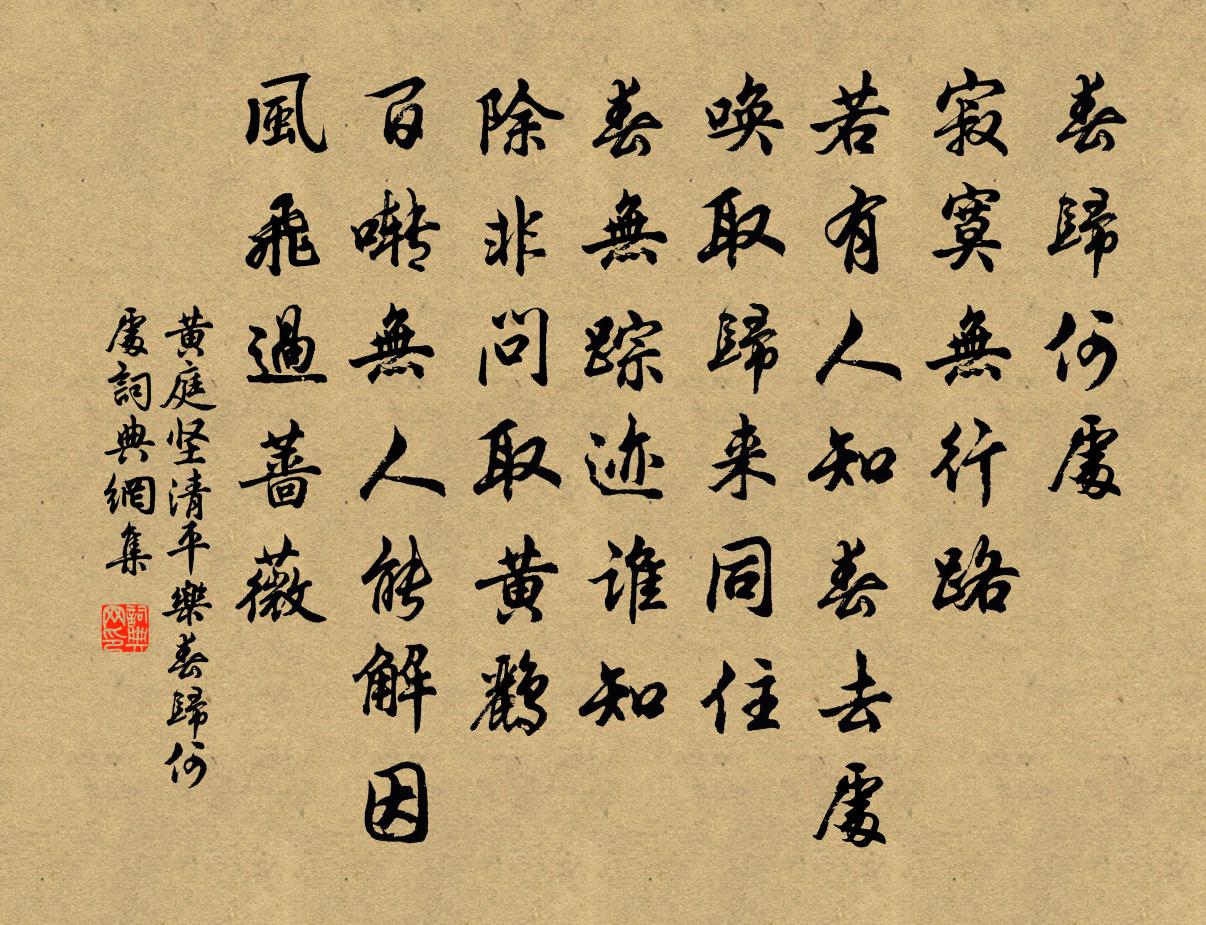 春歸何處
寂寞無行路
若有人知春去處
唤取歸来同住
春無踪迹誰知
除非問取黄鸝
百囀無人能解因
風飛過薔薇
黄庭坚清平樂春歸何
處詞典網集
詞典
网印